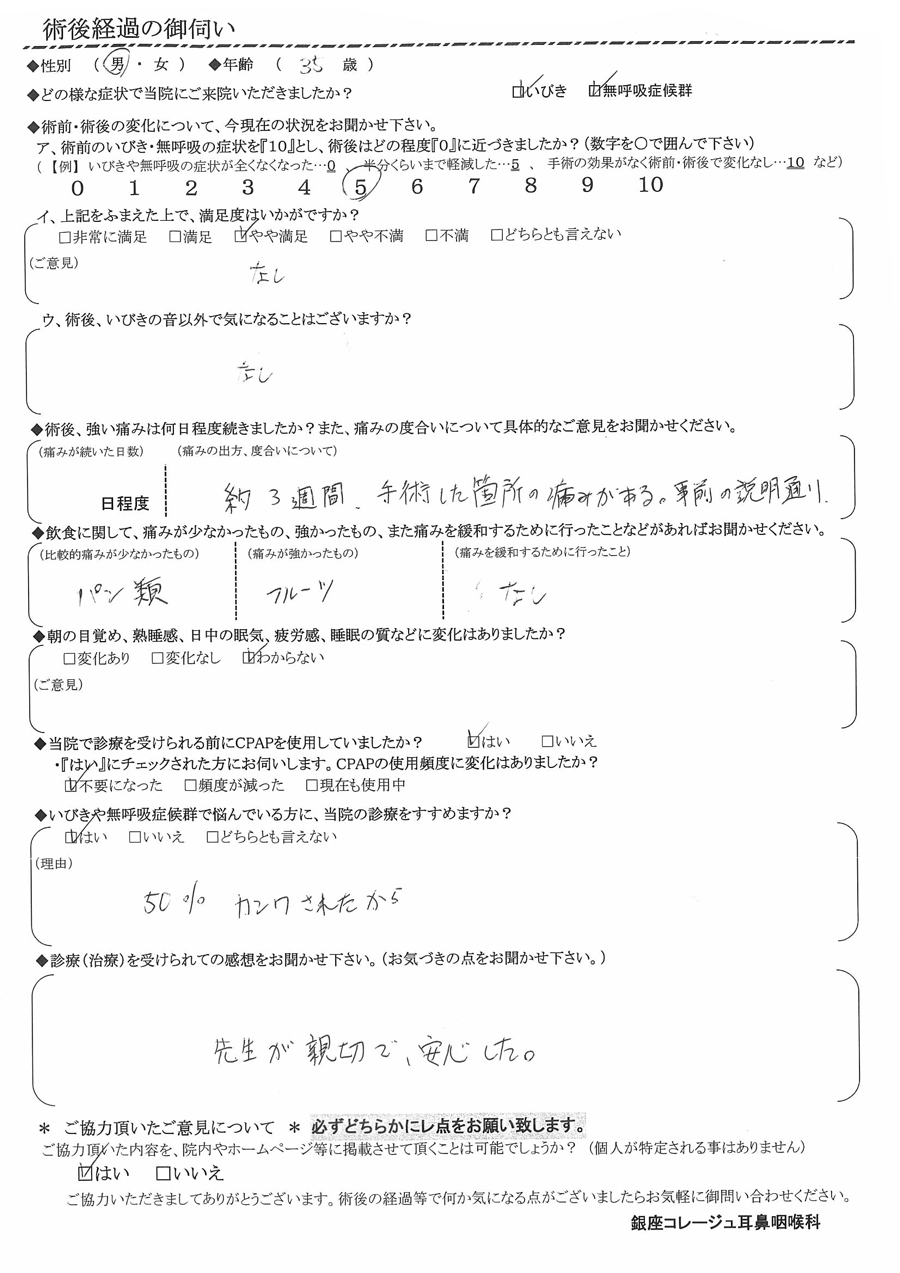 術後経過の御伺い
◆性別 （ 男 ・ 女 ） ◆年齢 （ 35 歳 ）
◆どの様な症状で当院にご来院いただきましたか？ ☑いびき ☑無呼吸症候群
◆術前・術後の変化について、今現在の状況をお聞かせ下さい。
ア、術前のいびき・無呼吸の症状を『10』とし、術後はどの程度『0』に近づきましたか？（数字を〇で囲んで下さい）
（ 【例】 いびきや無呼吸の症状が全くなくなった…0 、 半分くらいまで軽減した…5 、 手術の効果がなく術前・術後で変化なし…10 など）
0 1 2 3 4 5 6 7 8 9 10
イ、上記をふまえた上で、満足度はいかがですか？
□非常に満足 □満足 ☑やや満足 □やや不満 □不満 □どちらとも言えない
（ご意見）
なし
ウ、術後、いびきの音以外で気になることはございますか？
なし
◆術後、強い痛みは何日程度続きましたか？また、痛みの度合いについて具体的なご意見をお聞かせください。
（痛みが続いた日数） （痛みの出方、度合いについて）
日程度 約3週間、手術した箇所の痛みがある。事前の説明通り.
◆飲食に関して、痛みが少なかったもの、強かったもの、また痛みを緩和するために行ったことなどがあればお聞かせください。
（比較的痛みが少なかったもの） （痛みが強かったもの） （痛みを緩和するために行ったこと）
パン類 フルーツ なし
◆朝の目覚め、熟睡感、日中の眠気、疲労感、睡眠の質などに変化はありましたか？
□変化あり □変化なし ☑わからない
（ご意見）
◆当院で診療を受けられる前にCPAPを使用していましたか？ ☑はい □いいえ
・『はい』にチェックされた方にお伺いします。CPAPの使用頻度に変化はありましたか？
☑不要になった □頻度が減った □現在も使用中
◆いびきや無呼吸症候群で悩んでいる方に、当院の診療をすすめますか？
☑はい □いいえ □どちらとも言えない
（理由）
50% カンワされたから
◆診療（治療）を受けられての感想をお聞かせ下さい。（お気づきの点をお聞かせ下さい。）
先生が親切で、安心した。
＊ ご協力頂いたご意見について ＊ 必ずどちらかにレ点をお願い致します。
ご協力頂いた内容を、院内やホームページ等に掲載させて頂くことは可能でしょうか？ （個人が特定される事はありません）
☑はい □いいえ
ご協力いただきましてありがとうございます。術後の経過等で何か気になる点がございましたらお気軽に御問い合わせください。
銀座コレージュ耳鼻咽喉科